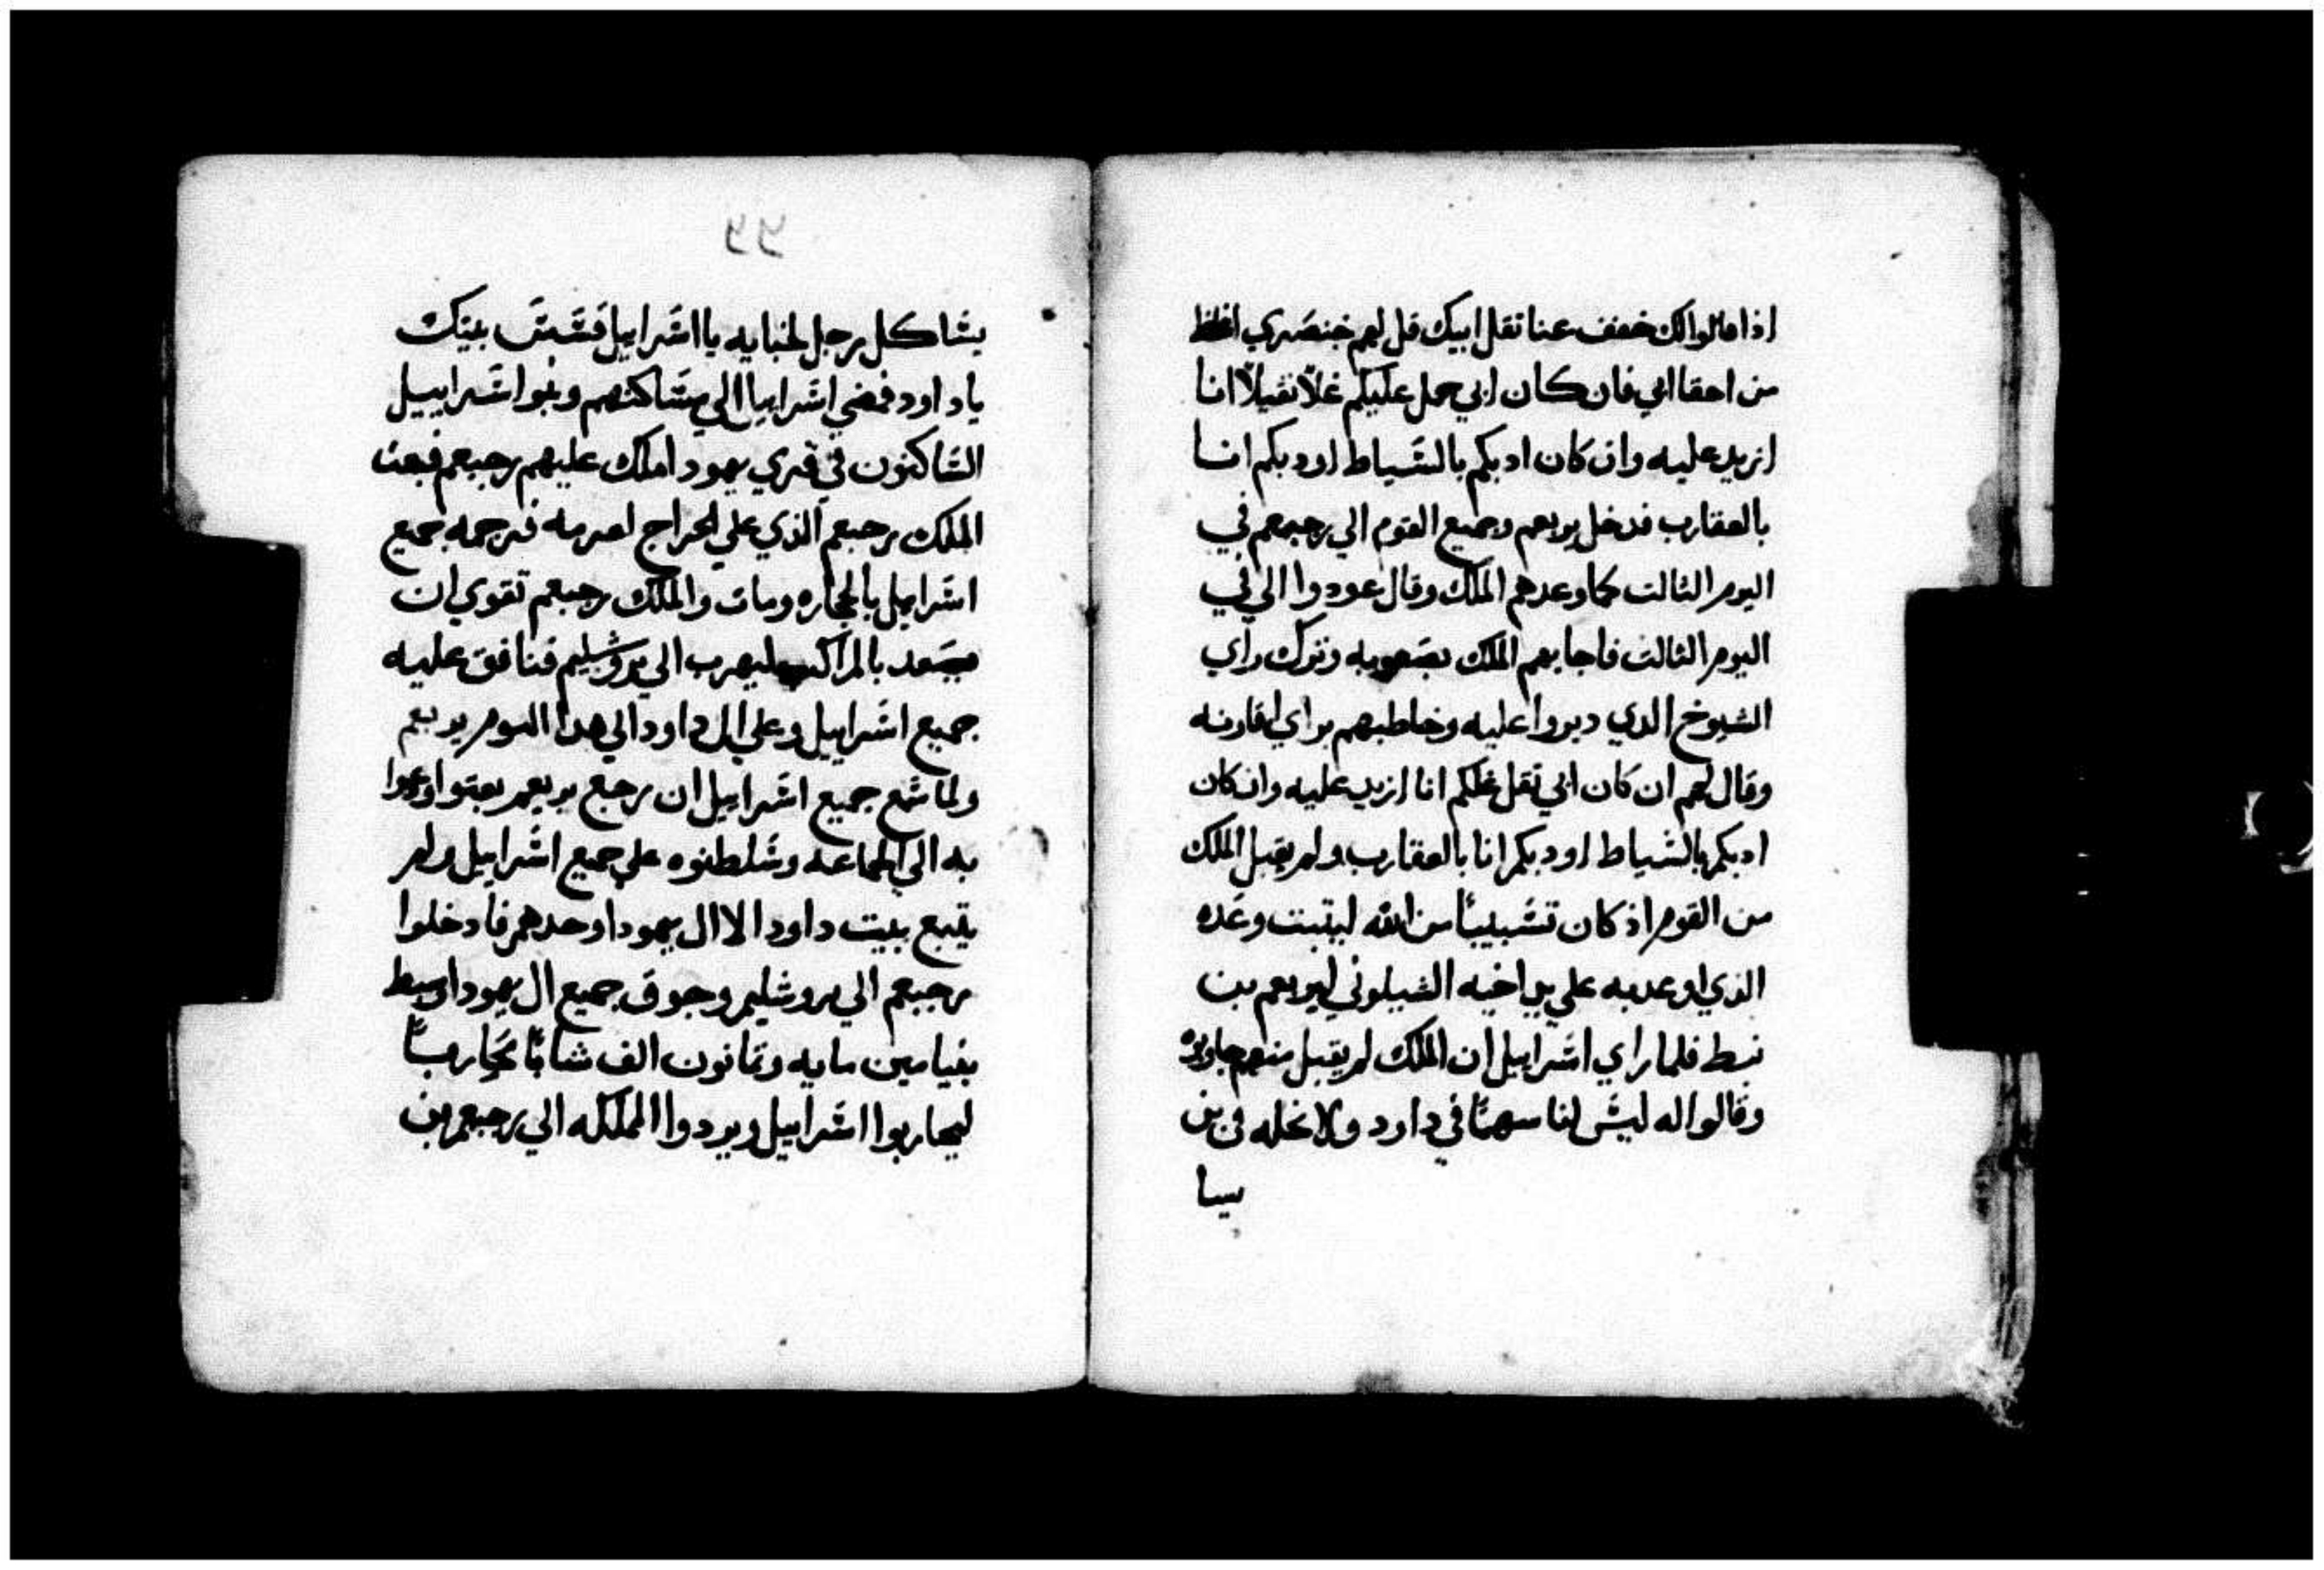 اذا قالوا لك خفف عنا ثقل ابيك قل لهم خنصري اغلظ
من احقا ابي فان كان ابي حمل عليكم غلّا ثقيلّا انا
ازيد عليه وان كان ادبكم بالسياط اودبكم انا
بالعقارب فدخل يوربعم وجميع القوم الي رحبعم في
اليوم الثالت كما وعدهم الملك وقال عودوا الي في
اليوم الثالت فاجابهم الملك بصعوبه وترك راي
الشيوخ الدي دبروا عليه وخاطبهم براي اقارنه
وقال لهم ان كان ابي ثقل غلكم انا ازيد عليه وان كان
ادبكم بالسياط اودبكم انا بالعقارب ولم يقبل الملك
من القوم اذ كان تسبيبًا من الله ليتبت وعده
الذي اوعد به علي يد اخيه الشيلوني ليوربعم بن
نبط فلما راي اسرابيل ان الملك لم يقبل منهم جاوبوه
وقالوا له ليس لنا سهمًا في داود ولا نحله في بن
يسا
99
يسا كل رجل لخبايه يا اسرابيل فستس بيتك
ياداود فمضي اسراييل الي مساكنهم وبنوا اسراييل
الساكنون في قري يهودا ملك عليهم رحبعم فبعت
الملك رحبعم الذي علي الخراج لعرمه فرجمه جميع
اسراييل بالحجاره ومات والملك رحبعم تقوي ان
يصعد بالمراكب ليهرب الي يروشليم فنافق عليه
جميع اسراييل وعلي ال داود الي هدا اليوم يوربعم
ولما سمع جميع اسراييل ان رجع يوربعم بعتوا ودعوا
به الي الجماعه وسلطنوه علي جميع اسراييل ولم
يتبع بيت داود الا ال يهودا وحدهم فادخلوا
رحبعم الي يروشليم وجوق جميع ال يهودا وسبط
بنيامين مايه وتمانون الف شابًا محاربًا
ليحاربوا اسراييل ويردوا المملكه الي رحبعم بن